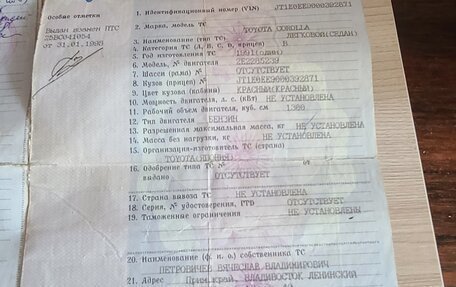 Особые отметки
Выдан взамен ПТС
25ВО041054
от 31.01.1995
1. Идентификационный номер (VIN) JT1E0EE9000392871
2. Марка, модель ТС TOYOTA COROLLA
3. Наименование (тип ТС) ЛЕГКОВОЙ(СЕДАН)
4. Категория ТС (A, B, C, D, прицеп) B
5. Год изготовления ТС 1991(один)
6. Модель, № двигателя 2E2285239
7. Шасси (рама) № ОТСУТСТВУЕТ
8. Кузов (прицеп) № JT1E0EE9000392871
9. Цвет кузова (кабины) КРАСНЫЙ(КРАСНЫЙ)
10. Мощность двигателя, л. с. (кВт) НЕ УСТАНОВЛЕНА
11. Рабочий объем двигателя, куб. см 1300
12. Тип двигателя БЕНЗИН
13. Разрешенная максимальная масса, кг НЕ УСТАНОВЛЕНА
14. Масса без нагрузки, кг НЕ УСТАНОВЛЕНА
15. Организация-изготовитель ТС (страна)
TOYOTA(ЯПОНИЯ)
16. Одобрение типа ТС № от
выдано ОТСУТСТВУЕТ
17. Страна вывоза ТС НЕ УСТАНОВЛЕНА
18. Серия, № удостоверения, ГТД ОТСУТСТВУЕТ
19. Таможенные ограничения НЕ УСТАНОВЛЕНЫ
20. Наименование (ф. и. о.) собственника ТС
ПЕТРОВИЧЕВ ВЯЧЕСЛАВ ВЛАДИМИРОВИЧ
21. Адрес Прим.край, ВЛАДИВОСТОК ЛЕНИНСКИЙ